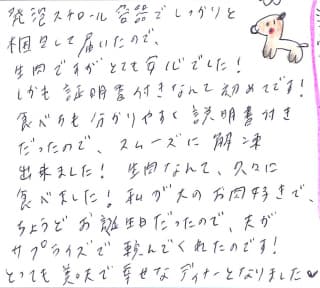 発泡スチロール容器でしっかりと
梱包して届いたので、
生肉ですがとても安心でした!
しかも証明書付きなんて初めてです!
食べ方も分かりやすく説明書付き
だったので、スムーズに解凍
出来ました! 生肉なんて、久々に
食べました! 私が大のお肉好きで、
ちょうどお誕生日だったので、夫が
サプライズで頼んでくれたのです!
とっても美味で幸せなディナーとなりました♥